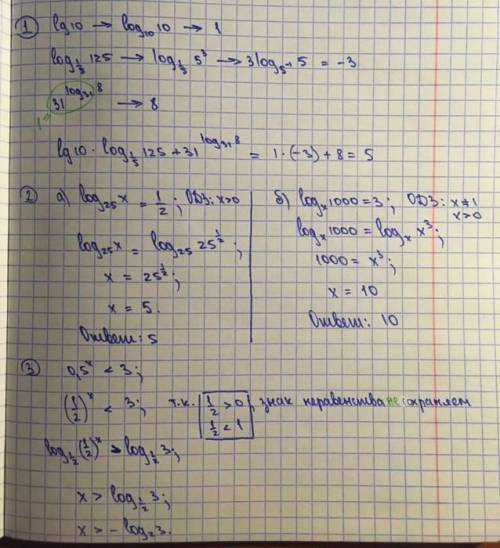 ① lg10 → log₁₀10 → 1
log_{1/5} 125 → log_{1/5} 5³ → 3log_{5⁻¹} 5 = -3
31^{log₃₁8} → 8
lg10 · log_{1/5} 125 + 31^{log₃₁8} = 1·(-3) + 8 = 5
② а) log₂₅x = 1/2; ОДЗ: x>0
log₂₅x = log₂₅ 25^{1/2};
x = 25^{1/2};
x = 5.
Ответ: 5
б) logₓ1000 = 3; ОДЗ: x≠1
x>0
logₓ1000 = logₓ x³;
1000 = x³;
x = 10
Ответ: 10
③ 0,5ˣ < 3;
(1/2)ˣ < 3; т.к. 1/2 > 0, знак неравенства не сохраняем
1/2 < 1
log_{1/2}(1/2)ˣ > log_{1/2} 3;
x > log_{1/2} 3;
x > -log₂3.